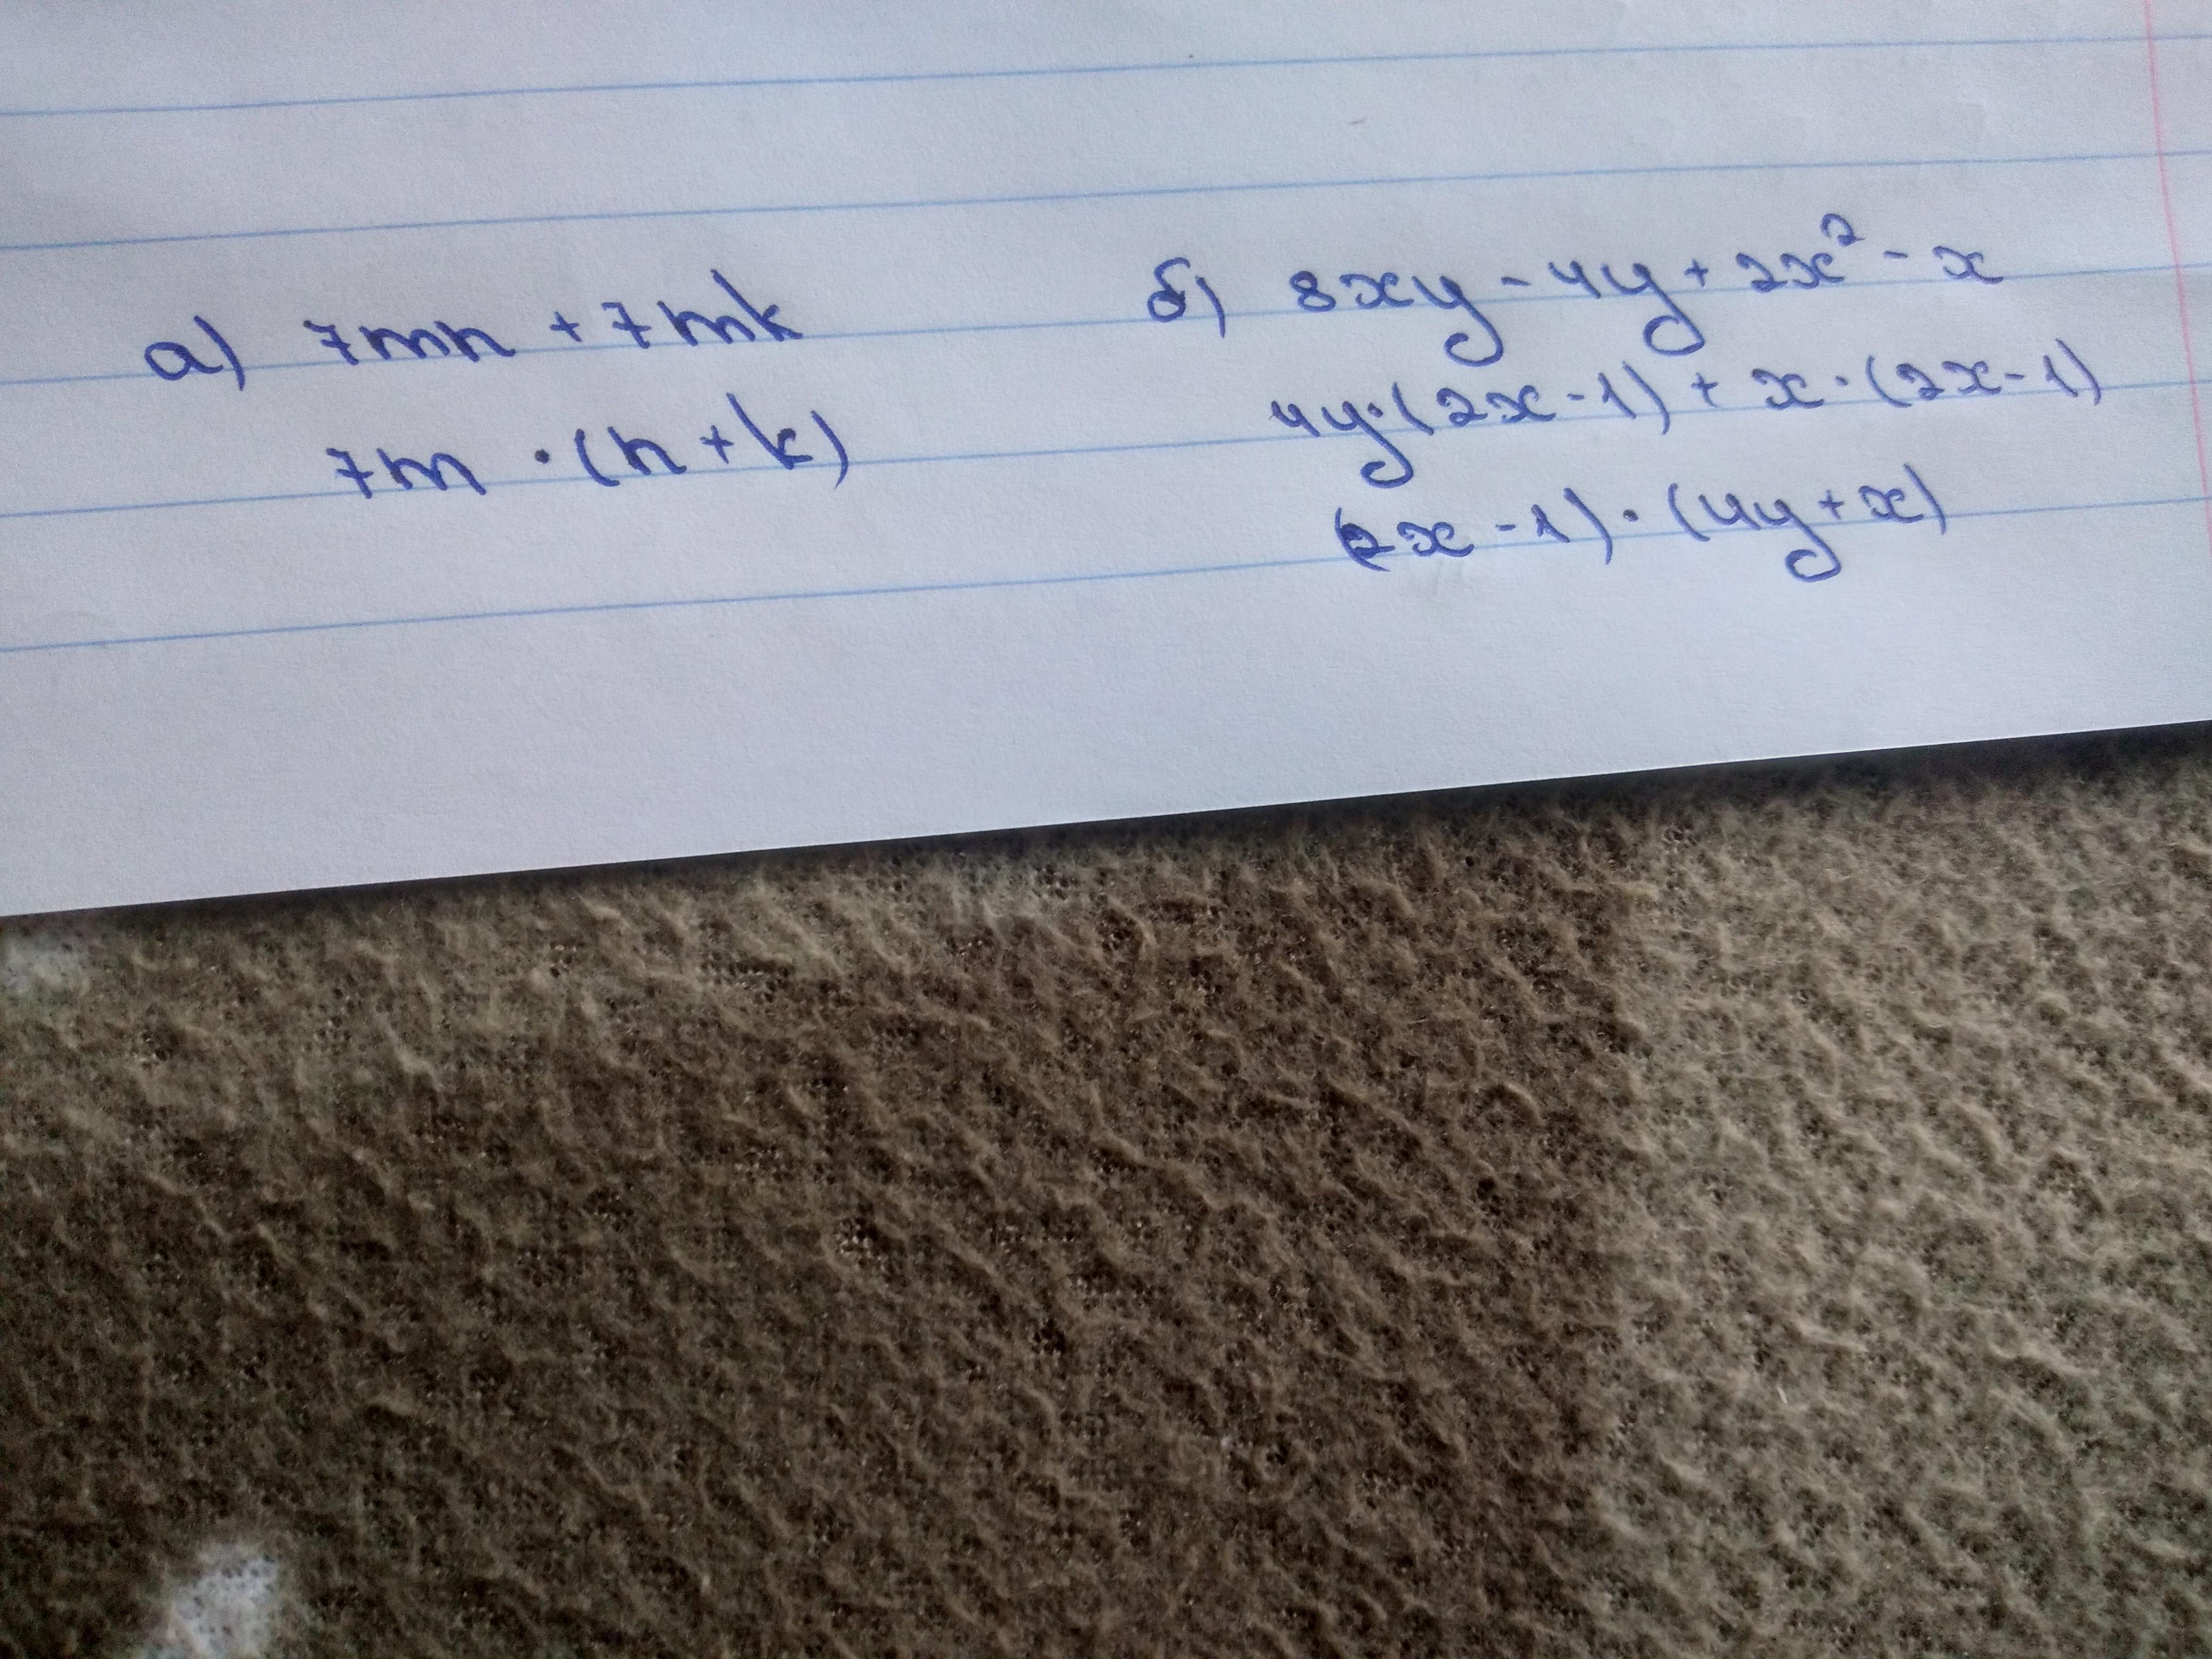 а) 7mn + 7mk
7m · (n + k)
б) 8xy - 4y + 2x² - x
4y·(2x - 1) + x · (2x - 1)
(2x - 1) · (4y + x)